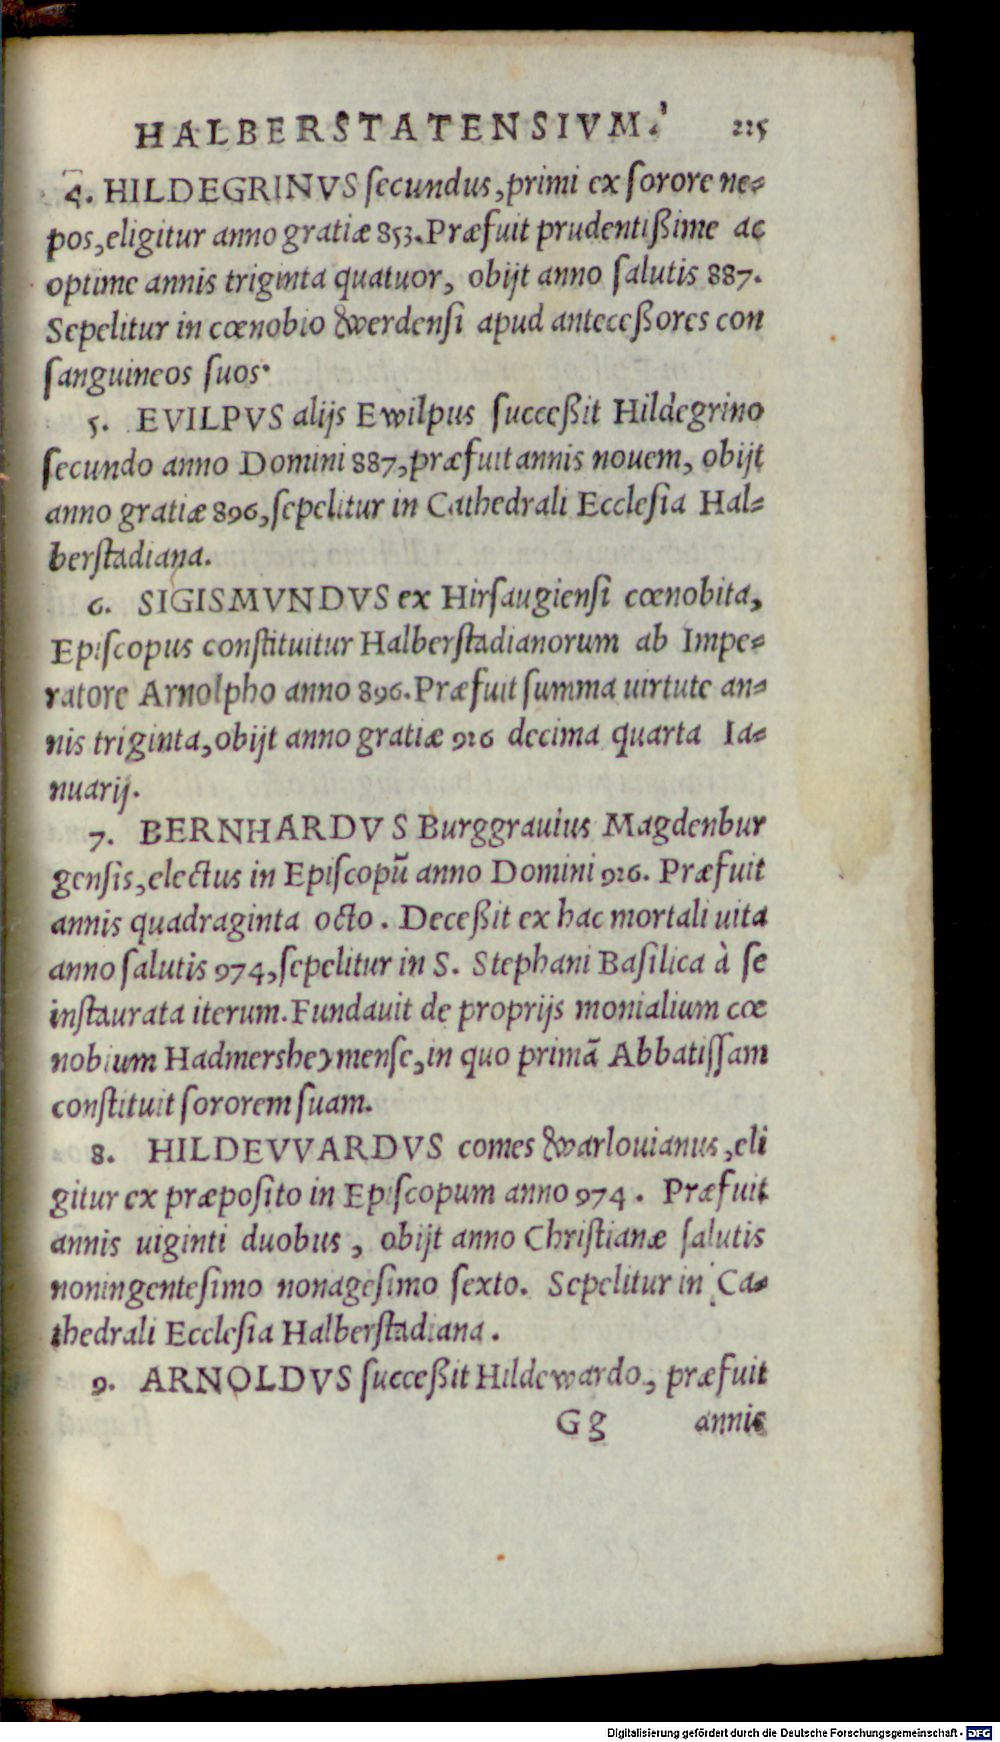 HALBERSTATENSIVM. 225
4. HILDEGRINVS ſecundus, primi ex ſorore ne=
pos, eligitur anno gratiæ 853. Præfuit prudentißime ac
optime annis triginta quatuor, obijt anno ſalutis 887.
Sepelitur in cœnobio Werdenſi apud anteceßores con
ſanguineos ſuos.
5. EVILPVS alijs Ewilpus ſucceßit Hildegrino
ſecundo anno Domini 887, præfuit annis nouem, obijt
anno gratiæ 896, ſepelitur in Cathedrali Eccleſia Hal=
berſtadiana.
6. SIGISMVNDVS ex Hirſaugienſi cœnobita,
Epiſcopus conſtituitur Halberſtadianorum ab Impe=
ratore Arnolpho anno 896. Præfuit ſumma uirtute an=
nis triginta, obijt anno gratiæ 926 decima quarta Ia=
nuarij.
7. BERNHARDVS Burggrauius Magdenbur
genſis, electus in Epiſcopũ anno Domini 926. Præfuit
annis quadraginta octo. Deceßit ex hac mortali uita
anno ſalutis 974, ſepelitur in S. Stephani Baſilica à ſe
inſtaurata iterum. Fundauit de proprijs monialium cœ
nobium Hadmersheymenſe, in quo primã Abbatiſſam
conſtituit ſororem ſuam.
8. HILDEVVARDVS comes Warlouianus, eli
gitur ex præpoſito in Epiſcopum anno 974. Præfuit
annis uiginti duobus, obijt anno Chriſtianæ ſalutis
noningenteſimo nonageſimo ſexto. Sepelitur in Ca=
thedrali Eccleſia Halberſtadiana.
9. ARNOLDVS ſucceßit Hildewardo, præfuit
Gg annis
Digitalisierung gefördert durch die Deutsche Forschungsgemeinschaft - DFG